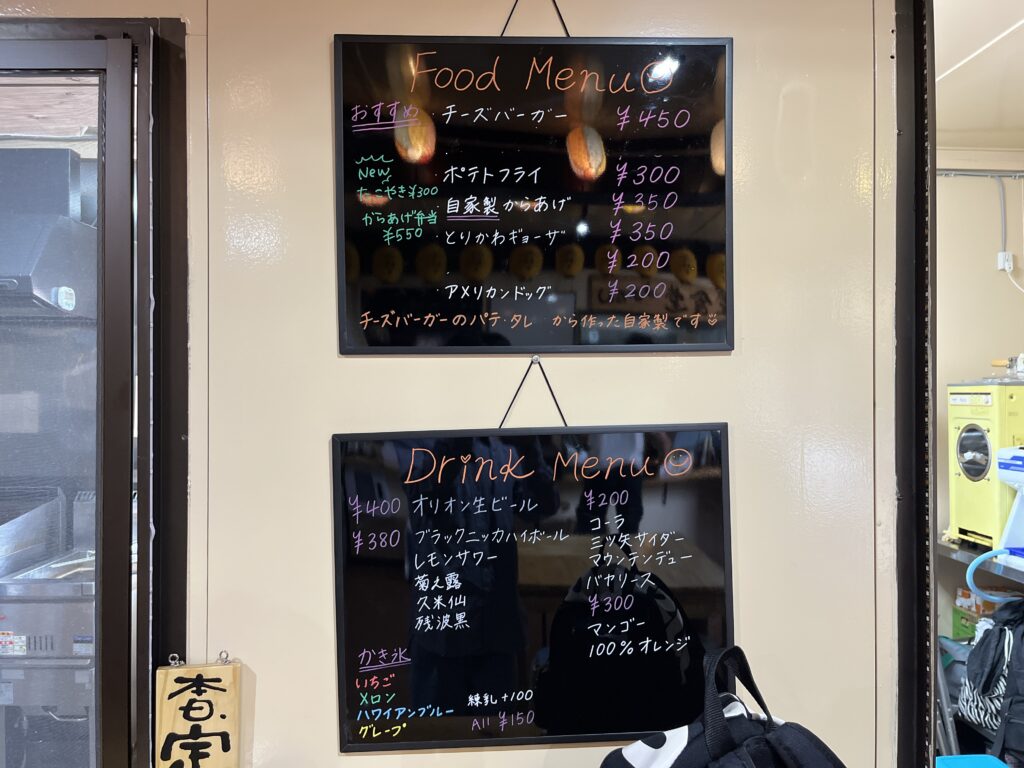 Food Menu
おすすめ ・チーズバーガー ¥450
New ・ポテトフライ ¥300
たこやき¥300
・自家製からあげ ¥350
からあげ弁当
¥550
・とりかわギョーザ ¥350
¥200
・アメリカンドッグ ¥200
チーズバーガーのパテ・タレ から作った自家製です
Drink Menu
¥400 オリオン生ビール
¥380 ブラックニッカハイボール
レモンサワー
菊之露
久米仙
残波黒
¥200
コーラ
三ツ矢サイダー
マウンテンデュー
バヤリース
¥300
マンゴー
100%オレンジ
かき氷
いちご
メロン
ハワイアンブルー
グレープ
練乳+100
All ¥150
本日、定